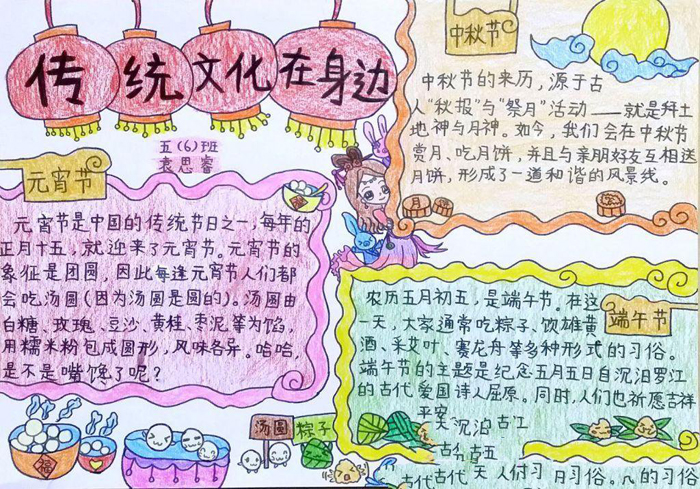 传统文化在身边
五(6)班
袁思睿
元宵节
元宵节是中国的传统节日之一,每年的
正月十五,就迎来了元宵节。元宵节的
象征是团圆,因此每逢元宵节人们都
会吃汤圆(因为汤圆是圆的)。汤圆由
白糖、玫瑰、豆沙、黄桂、枣泥等为馅,
用糯米粉包成圆形,风味各异。哈哈,
是不是嘴馋了呢?
中秋节
中秋节的来历,源于古
人“秋报”与“祭月”活动——就是拜土
地神与月神。如今,我们会在中秋节
赏月、吃月饼,并且与亲朋好友互相送
月饼,形成了一道和谐的风景线。
月
端午节
农历五月初五,是端午节。在这
一天,大家通常吃粽子、饮雄黄
酒、采艾叶、赛龙舟等多种形式的习俗。
端午节的主题是纪念五月五日自沉汨罗江
的古代爱国诗人屈原。同时,人们也祈愿吉祥
平安
天沉汨古江
古占古五
古代古代天人付习月习俗。的古代
汤圆
粽子
福